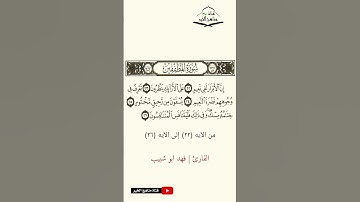 سُورَةُ المُطَفِّفِينَ
إِنَّ الْأَبْرَارَ لَفِي نَعِيمٍ ٢٢ عَلَى الْأَرَائِكِ يَنظُرُونَ ٢٣ تَعْرِفُ فِي
وُجُوهِهِمْ نَضْرَةَ النَّعِيمِ ٢٤ يُسْقَوْنَ مِن رَّحِيقٍ مَّخْتُومٍ ٢٥
خِتَامُهُ مِسْكٌ وَفِي ذَٰلِكَ فَلْيَتَنَافَسِ الْمُتَنَافِسُونَ ٢٦
من الايه (٢٢) إلى الايه (٢٦)
القارئ | فهد ابو شبيب
قناة مناهج الخير